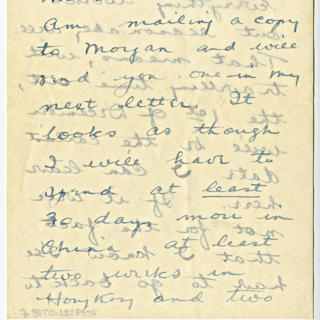 Am mailing a copy
to Morgan and will
send you one in my
next letter. It
looks as though
I will have to
spend at least
30 days more in
China at least
two weeks in
Hong Kong and two